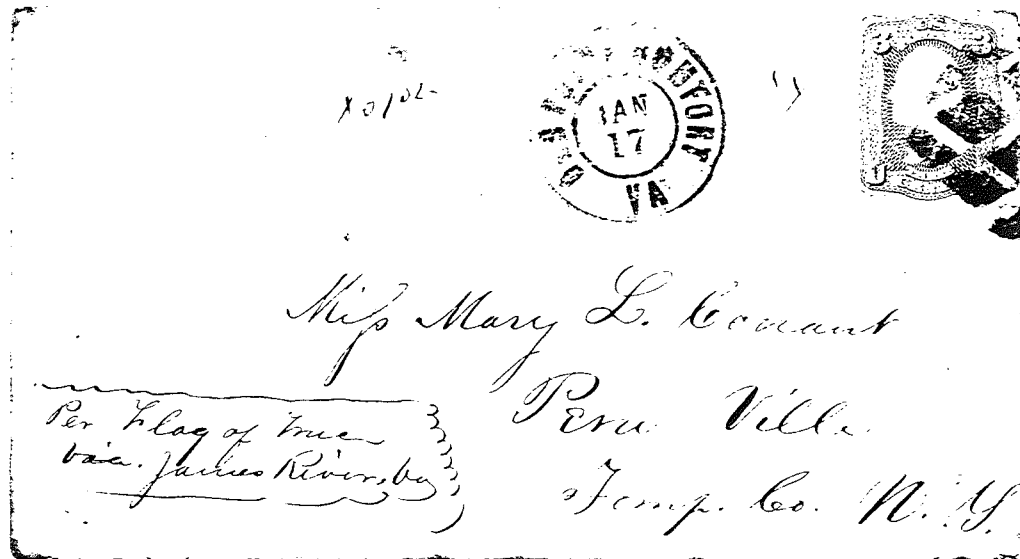 OLD POINT COMFORT
JAN
17
VA
3 3
U
Miss Mary L. Conant
Peru Ville
Tomp. Co. N.Y.
Per Flag of Truce
via. James River, Va